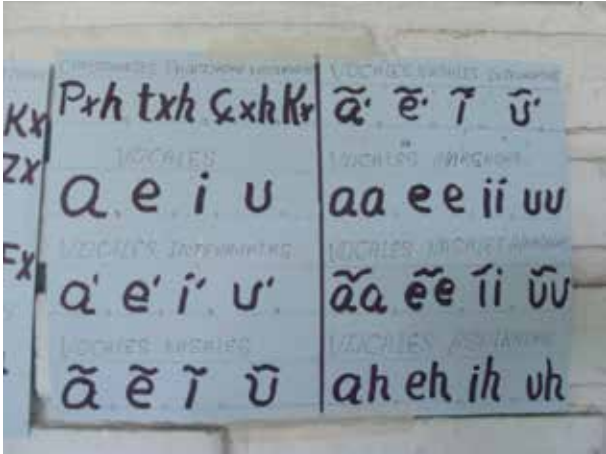 Kx
zx
Fx
Pxh txh çxh Kx
VOCALES
a e i u
VOCALES
a' e' i' u'
VOCALES NASALES
ã ẽ ĩ ũ
VOCALES NASALES
ã' ẽ' ĩ' ũ'
VOCALES
aa ee ii uu
VOCALES NASALES
ãa ẽe ĩi ũu
VOCALES
ah eh ih uh